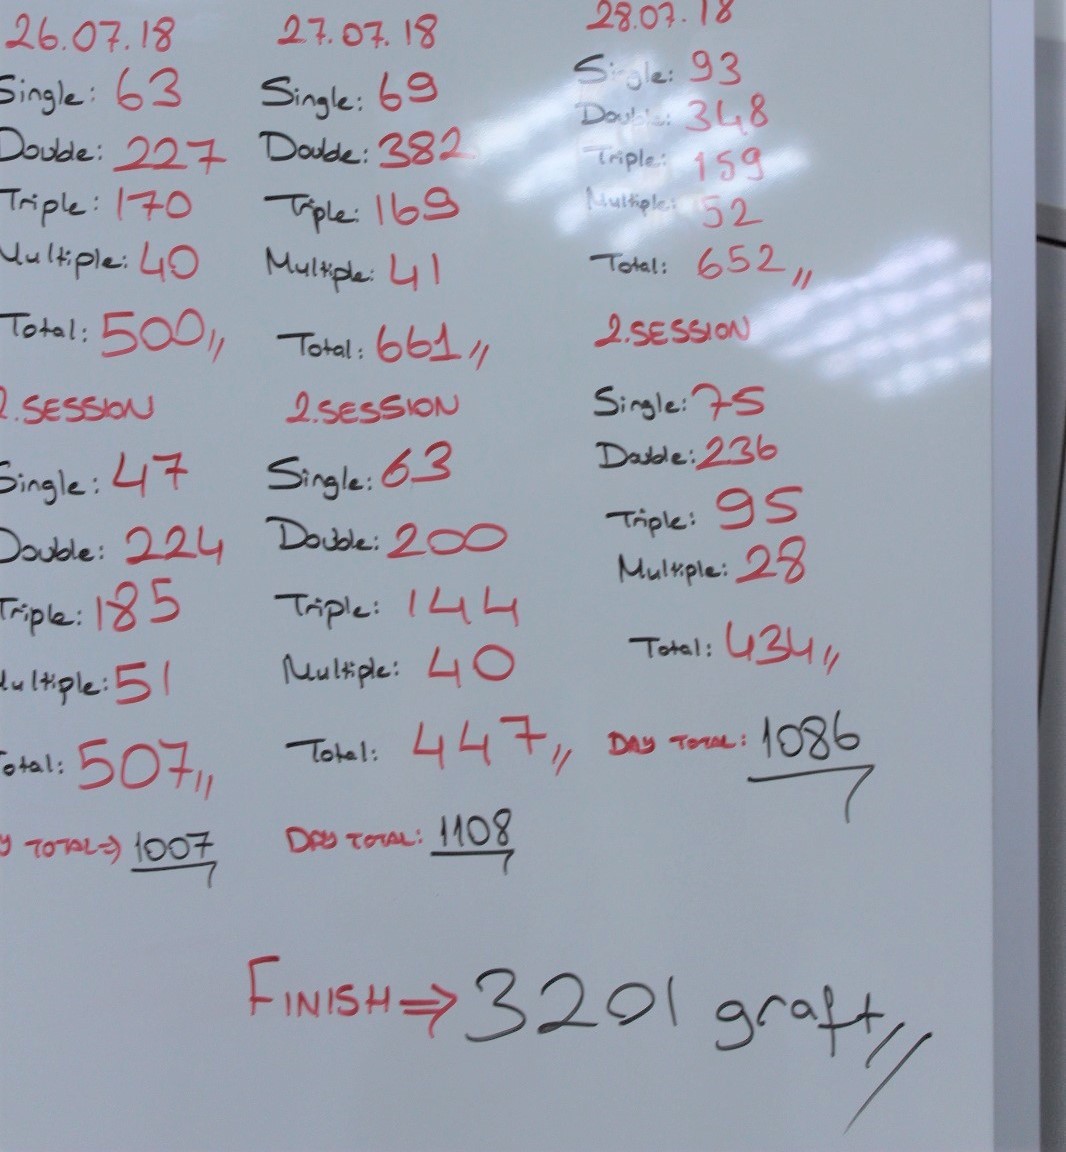 26.07.18
Single: 63
Double: 227
Triple: 170
Multiple: 40
Total: 500,,
2.SESSION
Single: 47
Double: 224
Triple: 185
Multiple: 51
Total: 507,,
Y TOTAL⇒ 1007
27.07.18
Single: 69
Double: 382
Triple: 169
Multiple: 41
Total: 661,,
2.SESSION
Single: 63
Double: 200
Triple: 144
Multiple: 40
Total: 447,,
DAY TOTAL: 1108
28.07.18
Single: 93
Double: 348
Triple: 159
Multiple: 52
Total: 652,,
2.SESSION
Single: 75
Double: 236
Triple: 95
Multiple: 28
Total: 434,,
DAY TOTAL: 1086
FINISH ⇒ 3201 graft,,